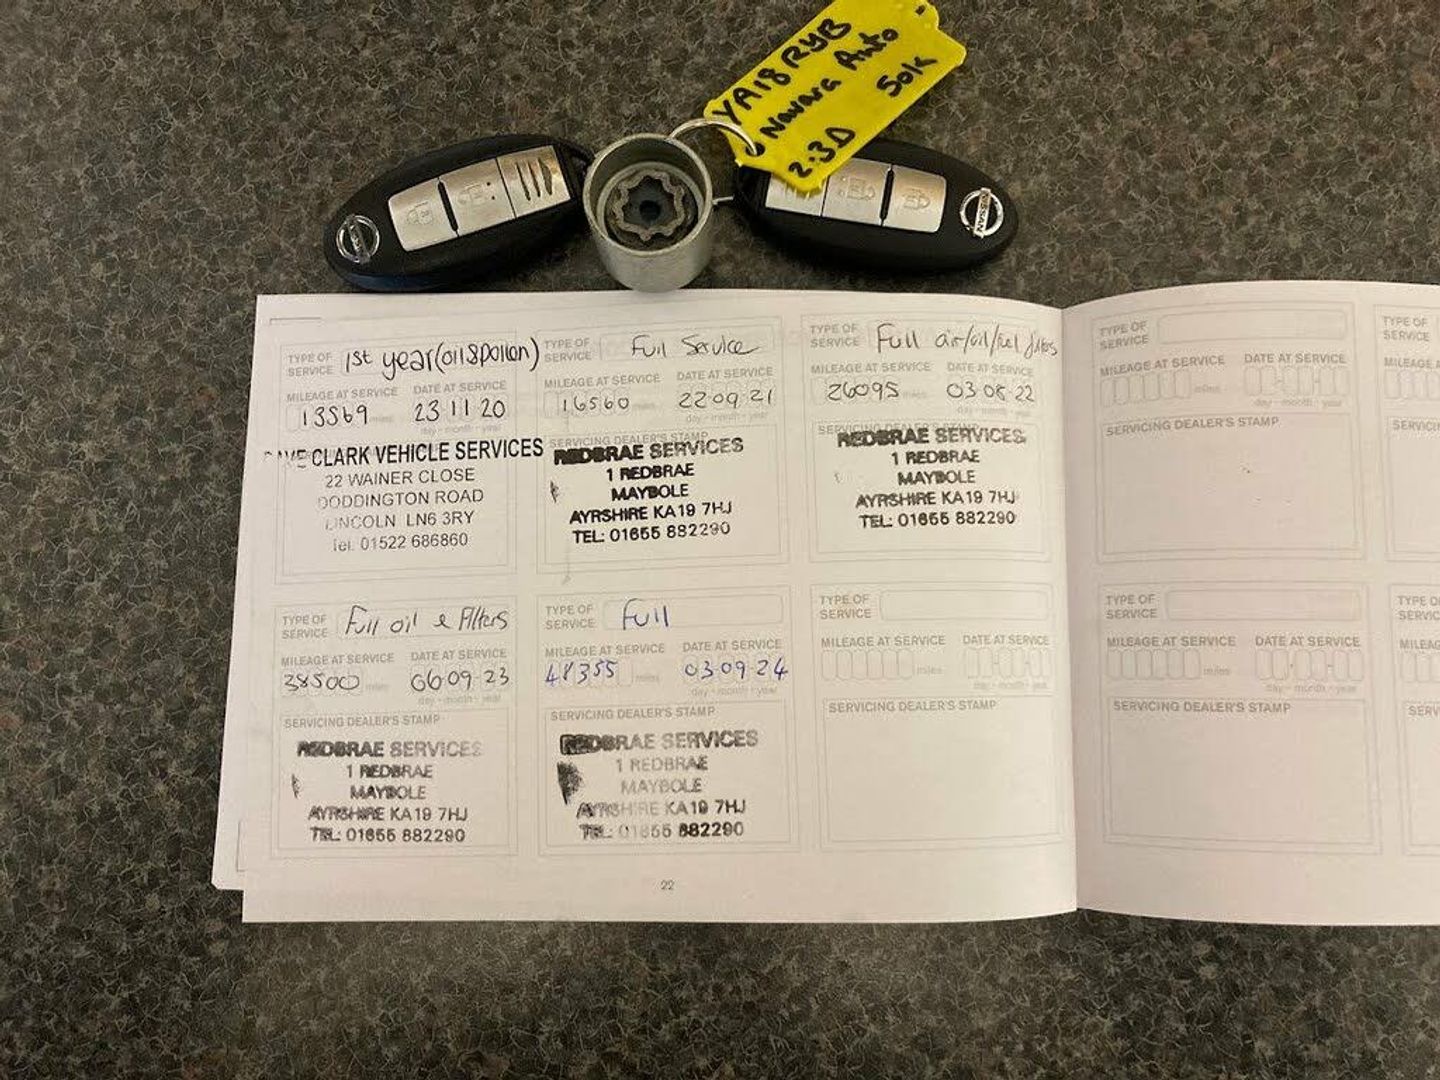 YA18 RYB
Navara Auto
2.3D 50k
NISSAN
TYPE OF SERVICE 1st year (oil & pollen)
MILEAGE AT SERVICE DATE AT SERVICE
13569 miles 23 11 20
CLARK VEHICLE SERVICES
22 WAINER CLOSE
DODDINGTON ROAD
LINCOLN LN6 3RY
Tel. 01522 686860
TYPE OF SERVICE Full Service
MILEAGE AT SERVICE DATE AT SERVICE
16560 miles 22 09 21
day - month - year
SERVICING DEALER'S STAMP
REDBRAE SERVICES
1 REDBRAE
MAYBOLE
AYRSHIRE KA19 7HJ
TEL: 01655 882290
TYPE OF SERVICE Full air/oil/fuel filters
MILEAGE AT SERVICE DATE AT SERVICE
26095 miles 03 08 22
day - month - year
SERVICING DEALER'S STAMP
REDBRAE SERVICES
1 REDBRAE
MAYBOLE
AYRSHIRE KA19 7HJ
TEL: 01655 882290
TYPE OF SERVICE
MILEAGE AT SERVICE DATE AT SERVICE
miles day - month - year
SERVICING DEALER'S STAMP
TYPE OF SERVICE Full oil & Filters
MILEAGE AT SERVICE DATE AT SERVICE
38500 miles 06 09 23
day - month - year
SERVICING DEALER'S STAMP
REDBRAE SERVICES
1 REDBRAE
MAYBOLE
AYRSHIRE KA19 7HJ
TEL: 01655 882290
TYPE OF SERVICE Full
MILEAGE AT SERVICE DATE AT SERVICE
48355 miles 03 09 24
day - month - year
SERVICING DEALER'S STAMP
REDBRAE SERVICES
1 REDBRAE
MAYBOLE
AYRSHIRE KA19 7HJ
TEL: 01655 882290
TYPE OF SERVICE
MILEAGE AT SERVICE DATE AT SERVICE
miles day - month - year
SERVICING DEALER'S STAMP
TYPE OF SERVICE
MILEAGE AT SERVICE DATE AT SERVICE
miles day - month - year
SERVICING DEALER'S STAMP
22